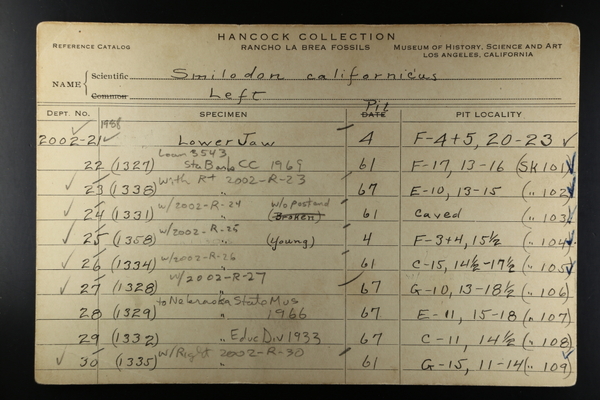 HANCOCK COLLECTION
REFERENCE CATALOG RANCHO LA BREA FOSSILS MUSEUM OF HISTORY, SCIENCE AND ART
LOS ANGELES, CALIFORNIA
NAME { Scientific Smilodon californicus
Common Left
Pit
DEPT. NO. SPECIMEN DATE PIT LOCALITY
1938
2002-21 Lower Jaw 4 F-4+5, 20-23
Loan 3543
22 (1327) Sta Barb CC 1969 61 F-17, 13-16 (SK 101)
23 (1338) With Rt 2002-R-23 67 E-10, 13-15 (" 102)
24 (1331) w/2002-R-24 w/o post end (Broken) 61 Caved (" 103)
25 (1358) w/2002-R-25 " (young) 4 F-3+4, 15½ (" 104)
26 (1334) w/2002-R-26 " 61 C-15, 14½-17½ (" 105)
27 (1328) w/2002-R-27 " 67 G-10, 13-18½ (" 106)
to Nebraska State Mus
28 (1329) " 1966 67 E-11, 15-18 (" 107)
29 (1332) " Educ Div 1933 67 C-11, 14½ (" 108)
30 (1335) w/Right 2002-R-30 " 61 G-15, 11-14 (" 109)